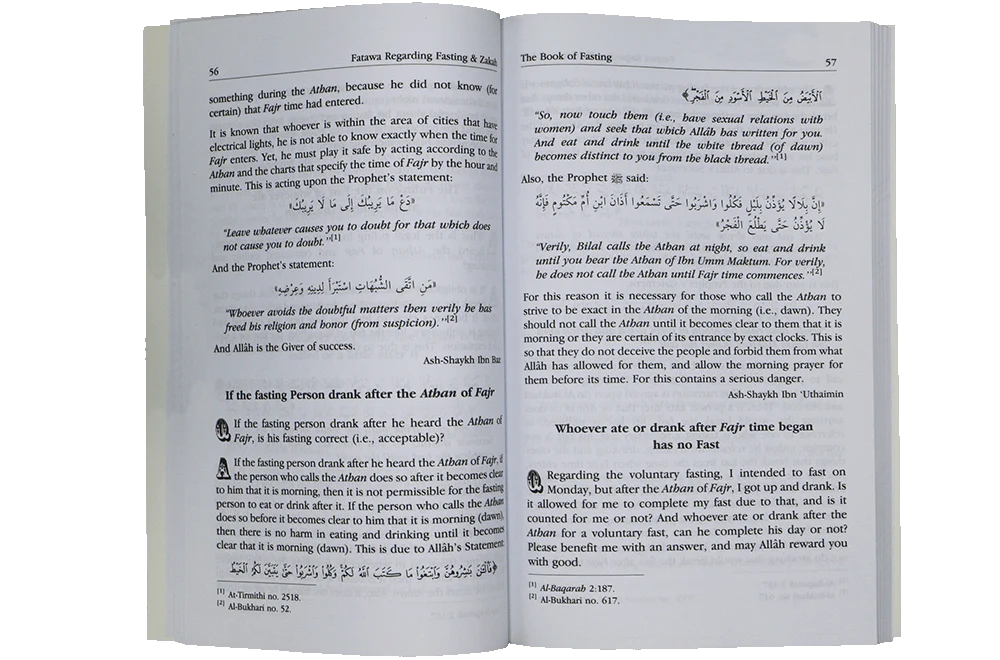 56
Fatawa Regarding Fasting & Zakah
something during the Athan, because he did not know (for
certain) that Fajr time had entered.
It is known that whoever is within the area of cities that have
electrical lights, he is not able to know exactly when the time for
Fajr enters. Yet, he must play it safe by acting according to the
Athan and the charts that specify the time of Fajr by the hour and
minute. This is acting upon the Prophet's statement:
«دَعْ مَا يَرِيبُكَ إِلَى مَا لَا يَرِيبُكَ»
"Leave whatever causes you to doubt for that which does
not cause you to doubt."[1]
And the Prophet's statement:
«مَنِ اتَّقَى الشُّبُهَاتِ اسْتَبْرَأَ لِدِينِهِ وَعِرْضِهِ»
"Whoever avoids the doubtful matters then verily he has
freed his religion and honor (from suspicion)."[2]
And Allâh is the Giver of success.
Ash-Shaykh Ibn Baz
If the fasting Person drank after the Athan of Fajr
Q If the fasting person drank after he heard the Athan of
Fajr, is his fasting correct (i.e., acceptable)?
A If the fasting person drank after he heard the Athan of Fajr, if
the person who calls the Athan does so after it becomes clear
to him that it is morning, then it is not permissible for the fasting
person to eat or drink after it. If the person who calls the Athan
does so before it becomes clear to him that it is morning (dawn),
then there is no harm in eating and drinking until it becomes
clear that it is morning (dawn). This is due to Allâh's Statement
﴿فَالْـَٔنَ بَـٰشِرُوهُنَّ وَابْتَغُوا مَا كَتَبَ اللَّهُ لَكُمْ وَكُلُوا وَاشْرَبُوا حَتَّىٰ يَتَبَيَّنَ لَكُمُ الْخَيْطُ
[1] At-Tirmithi no. 2518.
[2] Al-Bukhari no. 52.
The Book of Fasting
57
الْأَبْيَضُ مِنَ الْخَيْطِ الْأَسْوَدِ مِنَ الْفَجْرِ﴾
"So, now touch them (i.e., have sexual relations with
women) and seek that which Allâh has written for you.
And eat and drink until the white thread (of dawn)
becomes distinct to you from the black thread."[1]
Also, the Prophet ﷺ said:
«إِنَّ بِلَالًا يُؤَذِّنُ بِلَيْلٍ فَكُلُوا وَاشْرَبُوا حَتَّى تَسْمَعُوا أَذَانَ ابْنِ أُمِّ مَكْتُومٍ فَإِنَّهُ
لَا يُؤَذِّنُ حَتَّى يَطْلُعَ الْفَجْرُ»
"Verily, Bilal calls the Athan at night, so eat and drink
until you hear the Athan of Ibn Umm Maktum. For verily,
he does not call the Athan until Fajr time commences."[2]
For this reason it is necessary for those who call the Athan to
strive to be exact in the Athan of the morning (i.e., dawn). They
should not call the Athan until it becomes clear to them that it is
morning or they are certain of its entrance by exact clocks. This is
so that they do not deceive the people and forbid them from what
Allâh has allowed for them, and allow the morning prayer for
them before its time. For this contains a serious danger.
Ash-Shaykh Ibn 'Uthaimin
Whoever ate or drank after Fajr time began
has no Fast
Q Regarding the voluntary fasting, I intended to fast on
Monday, but after the Athan of Fajr, I got up and drank. Is
it allowed for me to complete my fast due to that, and is it
counted for me or not? And whoever ate or drank after the
Athan for a voluntary fast, can he complete his day or not?
Please benefit me with an answer, and may Allâh reward you
with good.
[1] Al-Baqarah 2:187.
[2] Al-Bukhari no. 617.